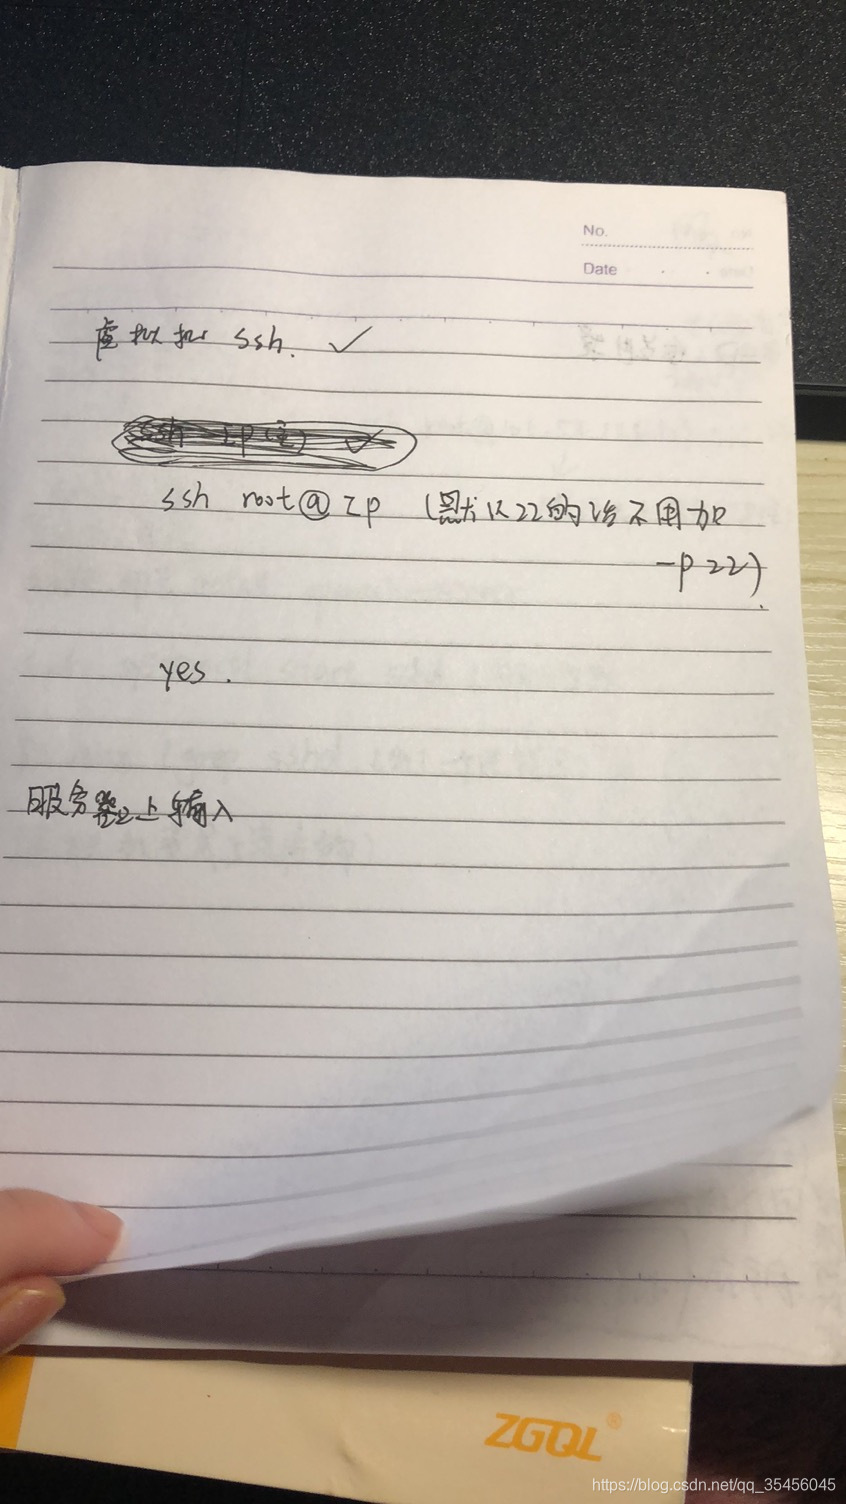 No.
Date
虚拟机 ssh. ✓
ssh root@ip (默认22的话不用加
-p 22).
yes.
服务器上输入
ZGQL®
https://blog.csdn.net/qq_35456045